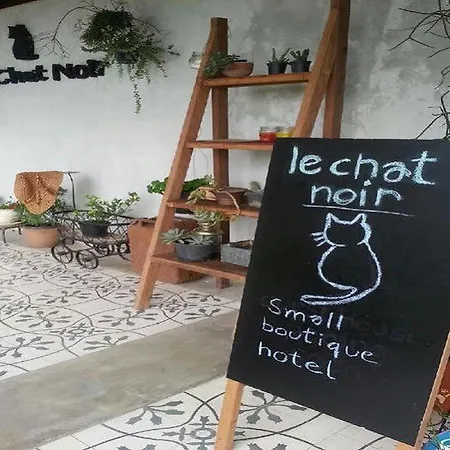 Chat Noir
le chat
noir
Small
boutique
hotel